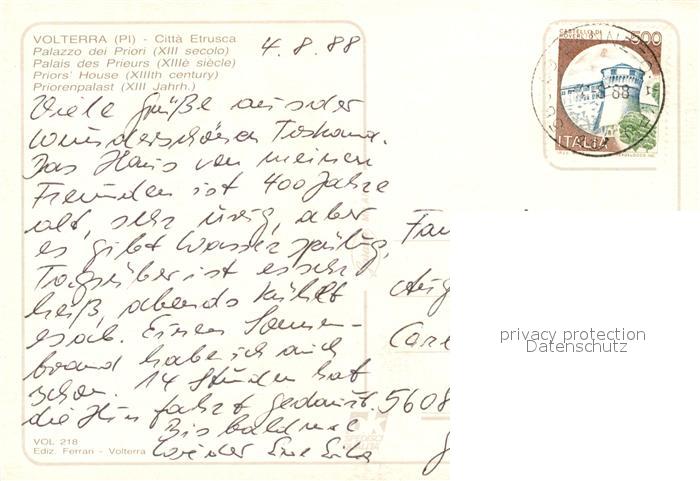 VOLTERRA (PI) - Città Etrusca
Palazzo dei Priori (XIII secolo)
Palais des Prieurs (XIIIè siècle)
Priors' House (XIIIth century)
Priorenpalast (XIII Jahrh.)
4.8.88
Viele Grüße aus der
wunderschönen Toskana.
Das Haus von meinen
Freunden ist 400 Jahre
alt, sehr urig, aber
es gibt Wasserspülung.
Tagsüber ist es sehr
heiß, abends kühlt
es ab. Einen Sonnen-
brand habe ich auch
schon. 14 Stunden hat
die Hinfahrt gedauert.
Bis bald mal
wieder Eure
5608
VOL 218
Ediz. Ferrari - Volterra
500
ITALIA
88
privacy protection
Datenschutz